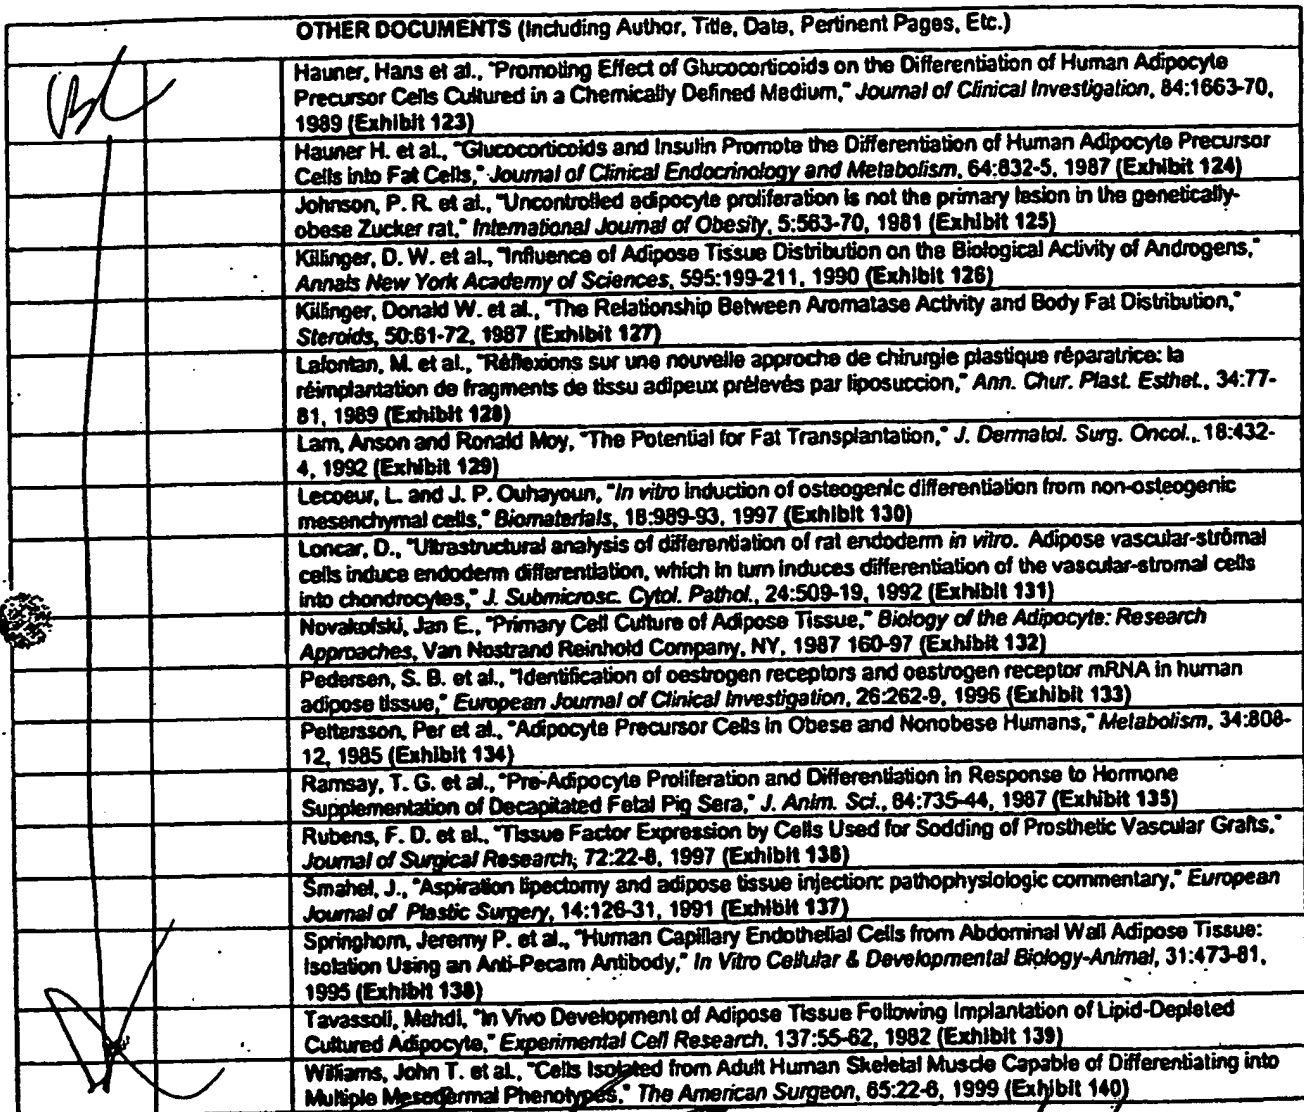 OTHER DOCUMENTS (Including Author, Title, Date, Pertinent Pages, Etc.)
Hauner, Hans et al., "Promoting Effect of Glucocorticoids on the Differentiation of Human Adipocyte
Precursor Cells Cultured in a Chemically Defined Medium," Journal of Clinical Investigation, 84:1663-70,
1989 (Exhibit 123)
Hauner H. et al., "Glucocorticoids and Insulin Promote the Differentiation of Human Adipocyte Precursor
Cells into Fat Cells," Journal of Clinical Endocrinology and Metabolism, 64:832-5, 1987 (Exhibit 124)
Johnson, P. R. et al., "Uncontrolled adipocyte proliferation is not the primary lesion in the genetically-
obese Zucker rat," International Journal of Obesity, 5:563-70, 1981 (Exhibit 125)
Killinger, D. W. et al., "Influence of Adipose Tissue Distribution on the Biological Activity of Androgens,"
Annals New York Academy of Sciences, 595:199-211, 1990 (Exhibit 126)
Killinger, Donald W. et al., "The Relationship Between Aromatase Activity and Body Fat Distribution,"
Steroids, 50:61-72, 1987 (Exhibit 127)
Lafontan, M. et al., "Réflexions sur une nouvelle approche de chirurgie plastique réparatrice: la
réimplantation de fragments de tissu adipeux prélevés par liposuccion," Ann. Chur. Plast. Esthet., 34:77-
81, 1989 (Exhibit 128)
Lam, Anson and Ronald Moy, "The Potential for Fat Transplantation," J. Dermatol. Surg. Oncol., 18:432-
4, 1992 (Exhibit 129)
Lecoeur, L. and J. P. Ouhayoun, "In vitro induction of osteogenic differentiation from non-osteogenic
mesenchymal cells," Biomaterials, 18:989-93, 1997 (Exhibit 130)
Loncar, D., "Ultrastructural analysis of differentiation of rat endoderm in vitro. Adipose vascular-stromal
cells induce endoderm differentiation, which in turn induces differentiation of the vascular-stromal cells
into chondrocytes," J. Submicrosc. Cytol. Pathol., 24:509-19, 1992 (Exhibit 131)
Novakofski, Jan E., "Primary Cell Culture of Adipose Tissue," Biology of the Adipocyte: Research
Approaches, Van Nostrand Reinhold Company, NY, 1987 160-97 (Exhibit 132)
Pedersen, S. B. et al., "Identification of oestrogen receptors and oestrogen receptor mRNA in human
adipose tissue," European Journal of Clinical Investigation, 26:262-9, 1996 (Exhibit 133)
Pettersson, Per et al., "Adipocyte Precursor Cells in Obese and Nonobese Humans," Metabolism, 34:808-
12, 1985 (Exhibit 134)
Ramsay, T. G. et al., "Pre-Adipocyte Proliferation and Differentiation in Response to Hormone
Supplementation of Decapitated Fetal Pig Sera," J. Anim. Sci., 64:735-44, 1987 (Exhibit 135)
Rubens, F. D. et al., "Tissue Factor Expression by Cells Used for Sodding of Prosthetic Vascular Grafts,"
Journal of Surgical Research, 72:22-8, 1997 (Exhibit 136)
Smahel, J., "Aspiration lipectomy and adipose tissue injection: pathophysiologic commentary," European
Journal of Plastic Surgery, 14:126-31, 1991 (Exhibit 137)
Springhorn, Jeremy P. et al., "Human Capillary Endothelial Cells from Abdominal Wall Adipose Tissue:
Isolation Using an Anti-Pecam Antibody," In Vitro Cellular & Developmental Biology-Animal, 31:473-81,
1995 (Exhibit 138)
Tavassoli, Mehdi, "In Vivo Development of Adipose Tissue Following Implantation of Lipid-Depleted
Cultured Adipocyte," Experimental Cell Research, 137:55-62, 1982 (Exhibit 139)
Williams, John T. et al., "Cells Isolated from Adult Human Skeletal Muscle Capable of Differentiating into
Multiple Mesodermal Phenotypes," The American Surgeon, 65:22-6, 1999 (Exhibit 140)